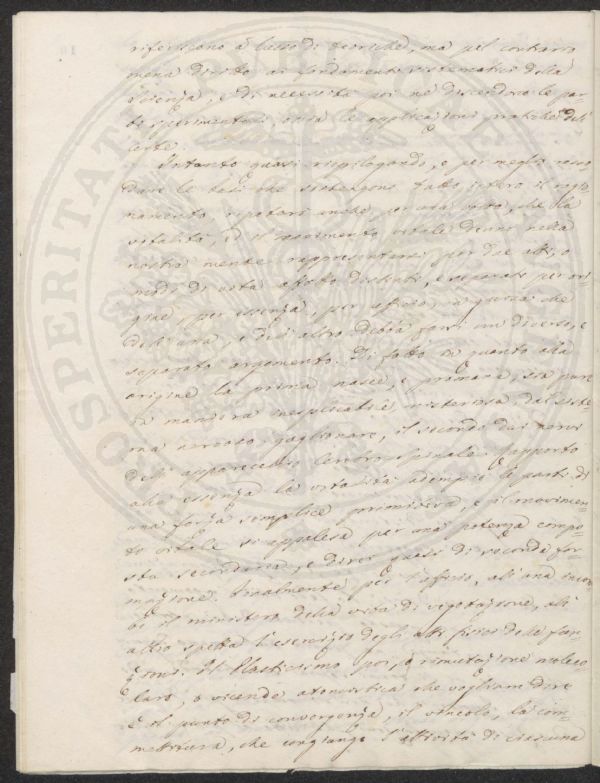 riferiscono a lusso di teoriche, ma pel contrario
mena diritto ai fondamenti sistematici della
Scienza, e di necessità poi ne discendono le par-
ti sperimentali ossia le applicazioni pratiche dell'
arte.
Intanto quasi riepilogando, e per meglio rasso-
dare le basi che sostengono tutto intero il ragio-
namento, ripeterò anche per una volta, che la
vitalità, ed il movimento vitale denno nella
nostra mente rappresentarsi per due atti, o
modi di vita affatto distinti, e separati per ori-
gine, per essenza, per officio, a guisa che
dell'una, e dell'altro debba farsi un diverso, e
separato argomento. Di fatto in quanto alla
origine la prima nasce, e promana, sia pure
in maniera inesplicabile misteriosa dal siste-
ma nervoso gaglionare, il secondo dai nervi
dell'apparecchio cerebro-spinale. Rapporto
alla essenza la vitalità adempie le parti di
una forza semplice primitiva, e il movimen-
to vitale si appalesa per una potenza compo-
sta secondaria, e direi quasi di seconda for-
mazione. Finalmente per l'officio, all'una incom-
be il ministero della vita di vegetazione, all'
altro spetta l'esercizio degli atti fisici delle fun-
zioni. Il Plasticismo poi, o rimutazione mole-
colare, o vicenda atomistica che vogliam dire
è il punto di convergenza, il vincolo, la com-
mettitura, che congiunge l'attività di ciascuna